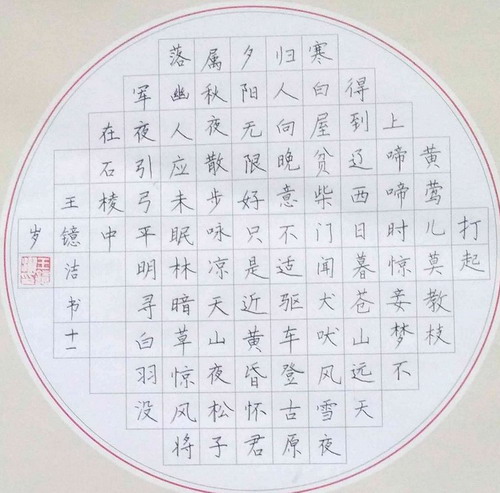 打起
黄莺儿莫教枝
上啼啼时惊妾梦不
得到辽西日暮苍山远天
寒白屋贫柴门闻犬吠风雪夜
归人向晚意不适驱车登古原
夕阳无限好只是近黄昏怀君
属秋夜散步咏凉天山夜松子
落幽人应未眠林暗草惊风将
军夜引弓平明寻白羽没
在石棱中
王镱洁书十一
岁